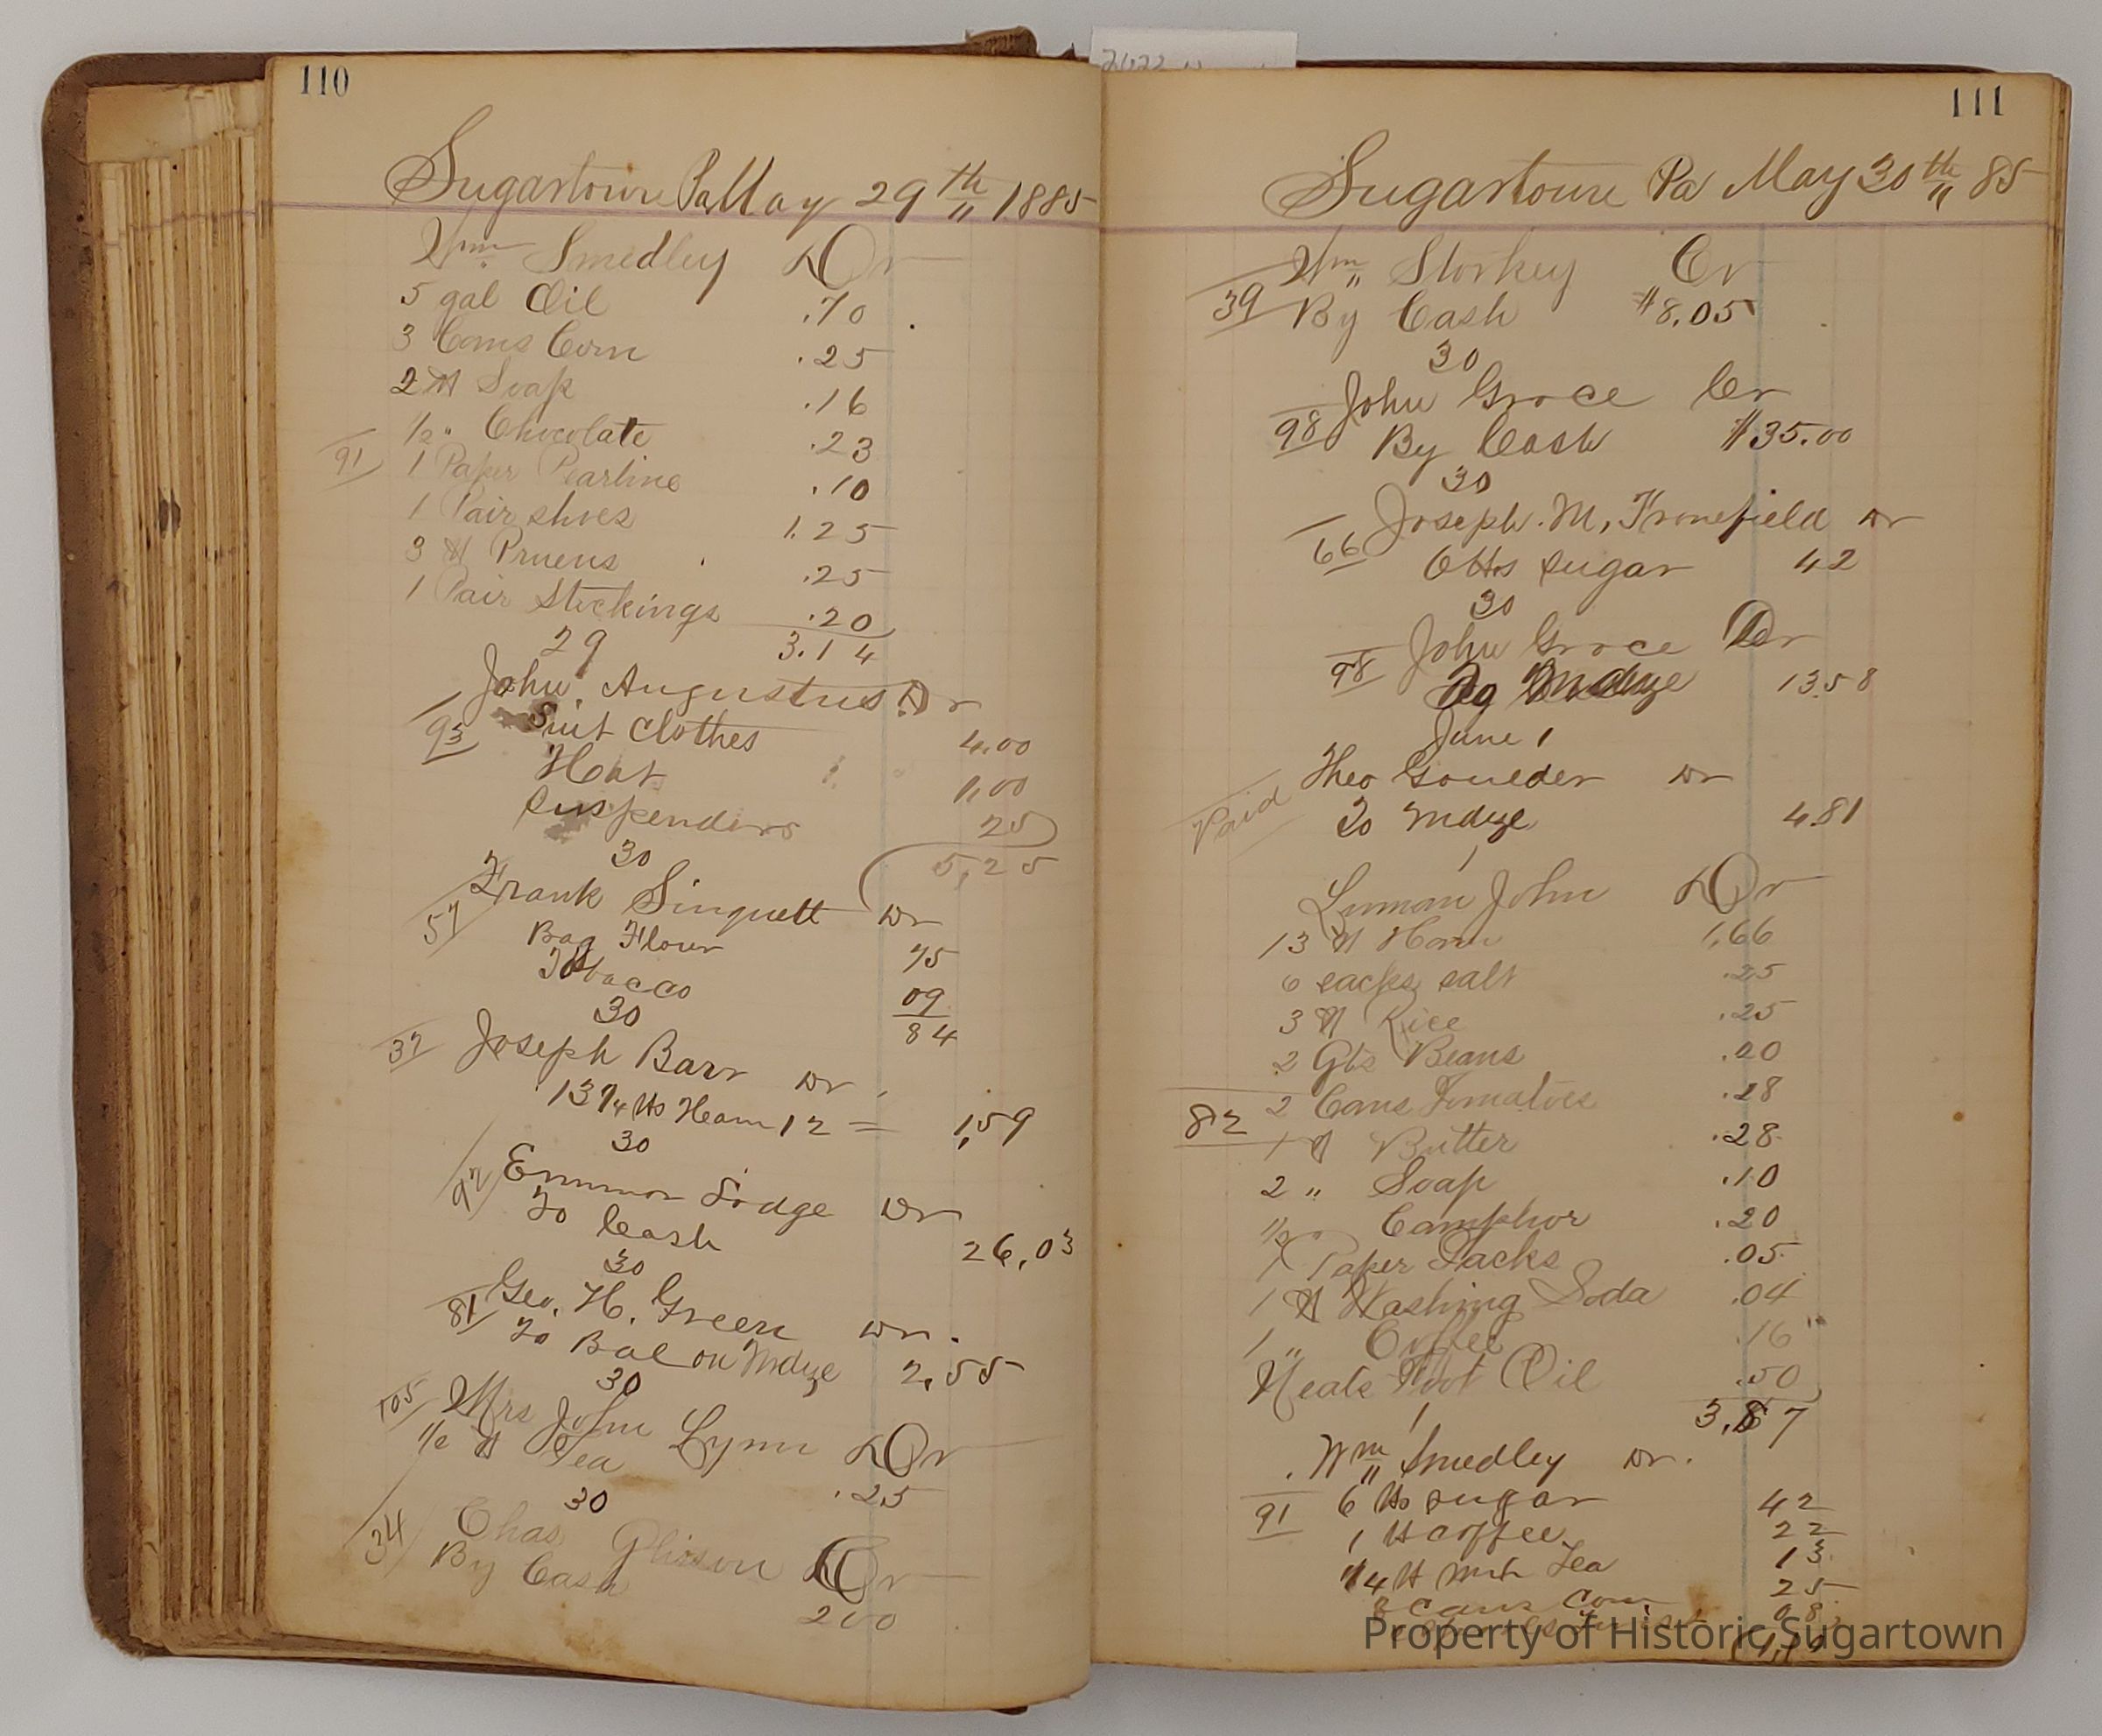 110
Sugartown Pa May 29th 1885
Wm Smedley Dr
5 gal Oil .70
3 Cans Corn .25
2 lb Soap .16
1/2 " Chocolate .23
91 1 Paper Pearline .10
1 Pair shoes 1.25
3 lb Pruens .25
1 Pair Stockings .20
29 3.14
John Augustus Dr
93 Suit Clothes 4.00
Hat 1.00
Suspenders 25
30 5,25
Frank Singuett Dr
57 Bag Flour 75
Tobacco 09
30 84
37 Joseph Barr Dr
13 1/4 lbs Ham 12 = 1,59
30
Lodge Dr
92 To Cash 26,03
30
81 Geo. H. Green Dr.
To Bal on Mdze 2,55
30
105 Mrs John Lynn Dr
1/2 lb Tea .25
30
34 Chas Cr
By Cash 200
111
Sugartown Pa May 30th 85
Wm Storkey Cr
39 By Cash $8.05
30
John Groce Cr
98 By Cash $35.00
30
Joseph. M. Fronefield Dr
66 6 lbs sugar 42
30
John Groce Dr
98 To Mdze 13.58
June 1
Theo Goueder Dr
Paid To Mdze 4.81
1
Luman John Dr
13 lb Ham 1,66
6 sacks salt .25
3 lb Rice .25
2 Qts Beans .20
2 Cans Tomatoes .28
82 1 lb Butter .28
2 " Soap .10
1/2 " Camphor .20
1 Paper Tacks .05
1 lb Washing Soda .04
1 " Coffee .16
Neats Foot Oil .50
1 3.87
Wm Smedley Dr.
91 6 lbs sugar 42
1 lb Coffee 22
1/4 lb Tea 13
cans Corn 25
08
Property of Historic Sugartown